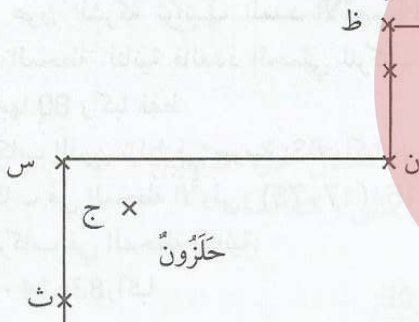 ظ
ن
س
ج
حَلَزُونٌ
ث